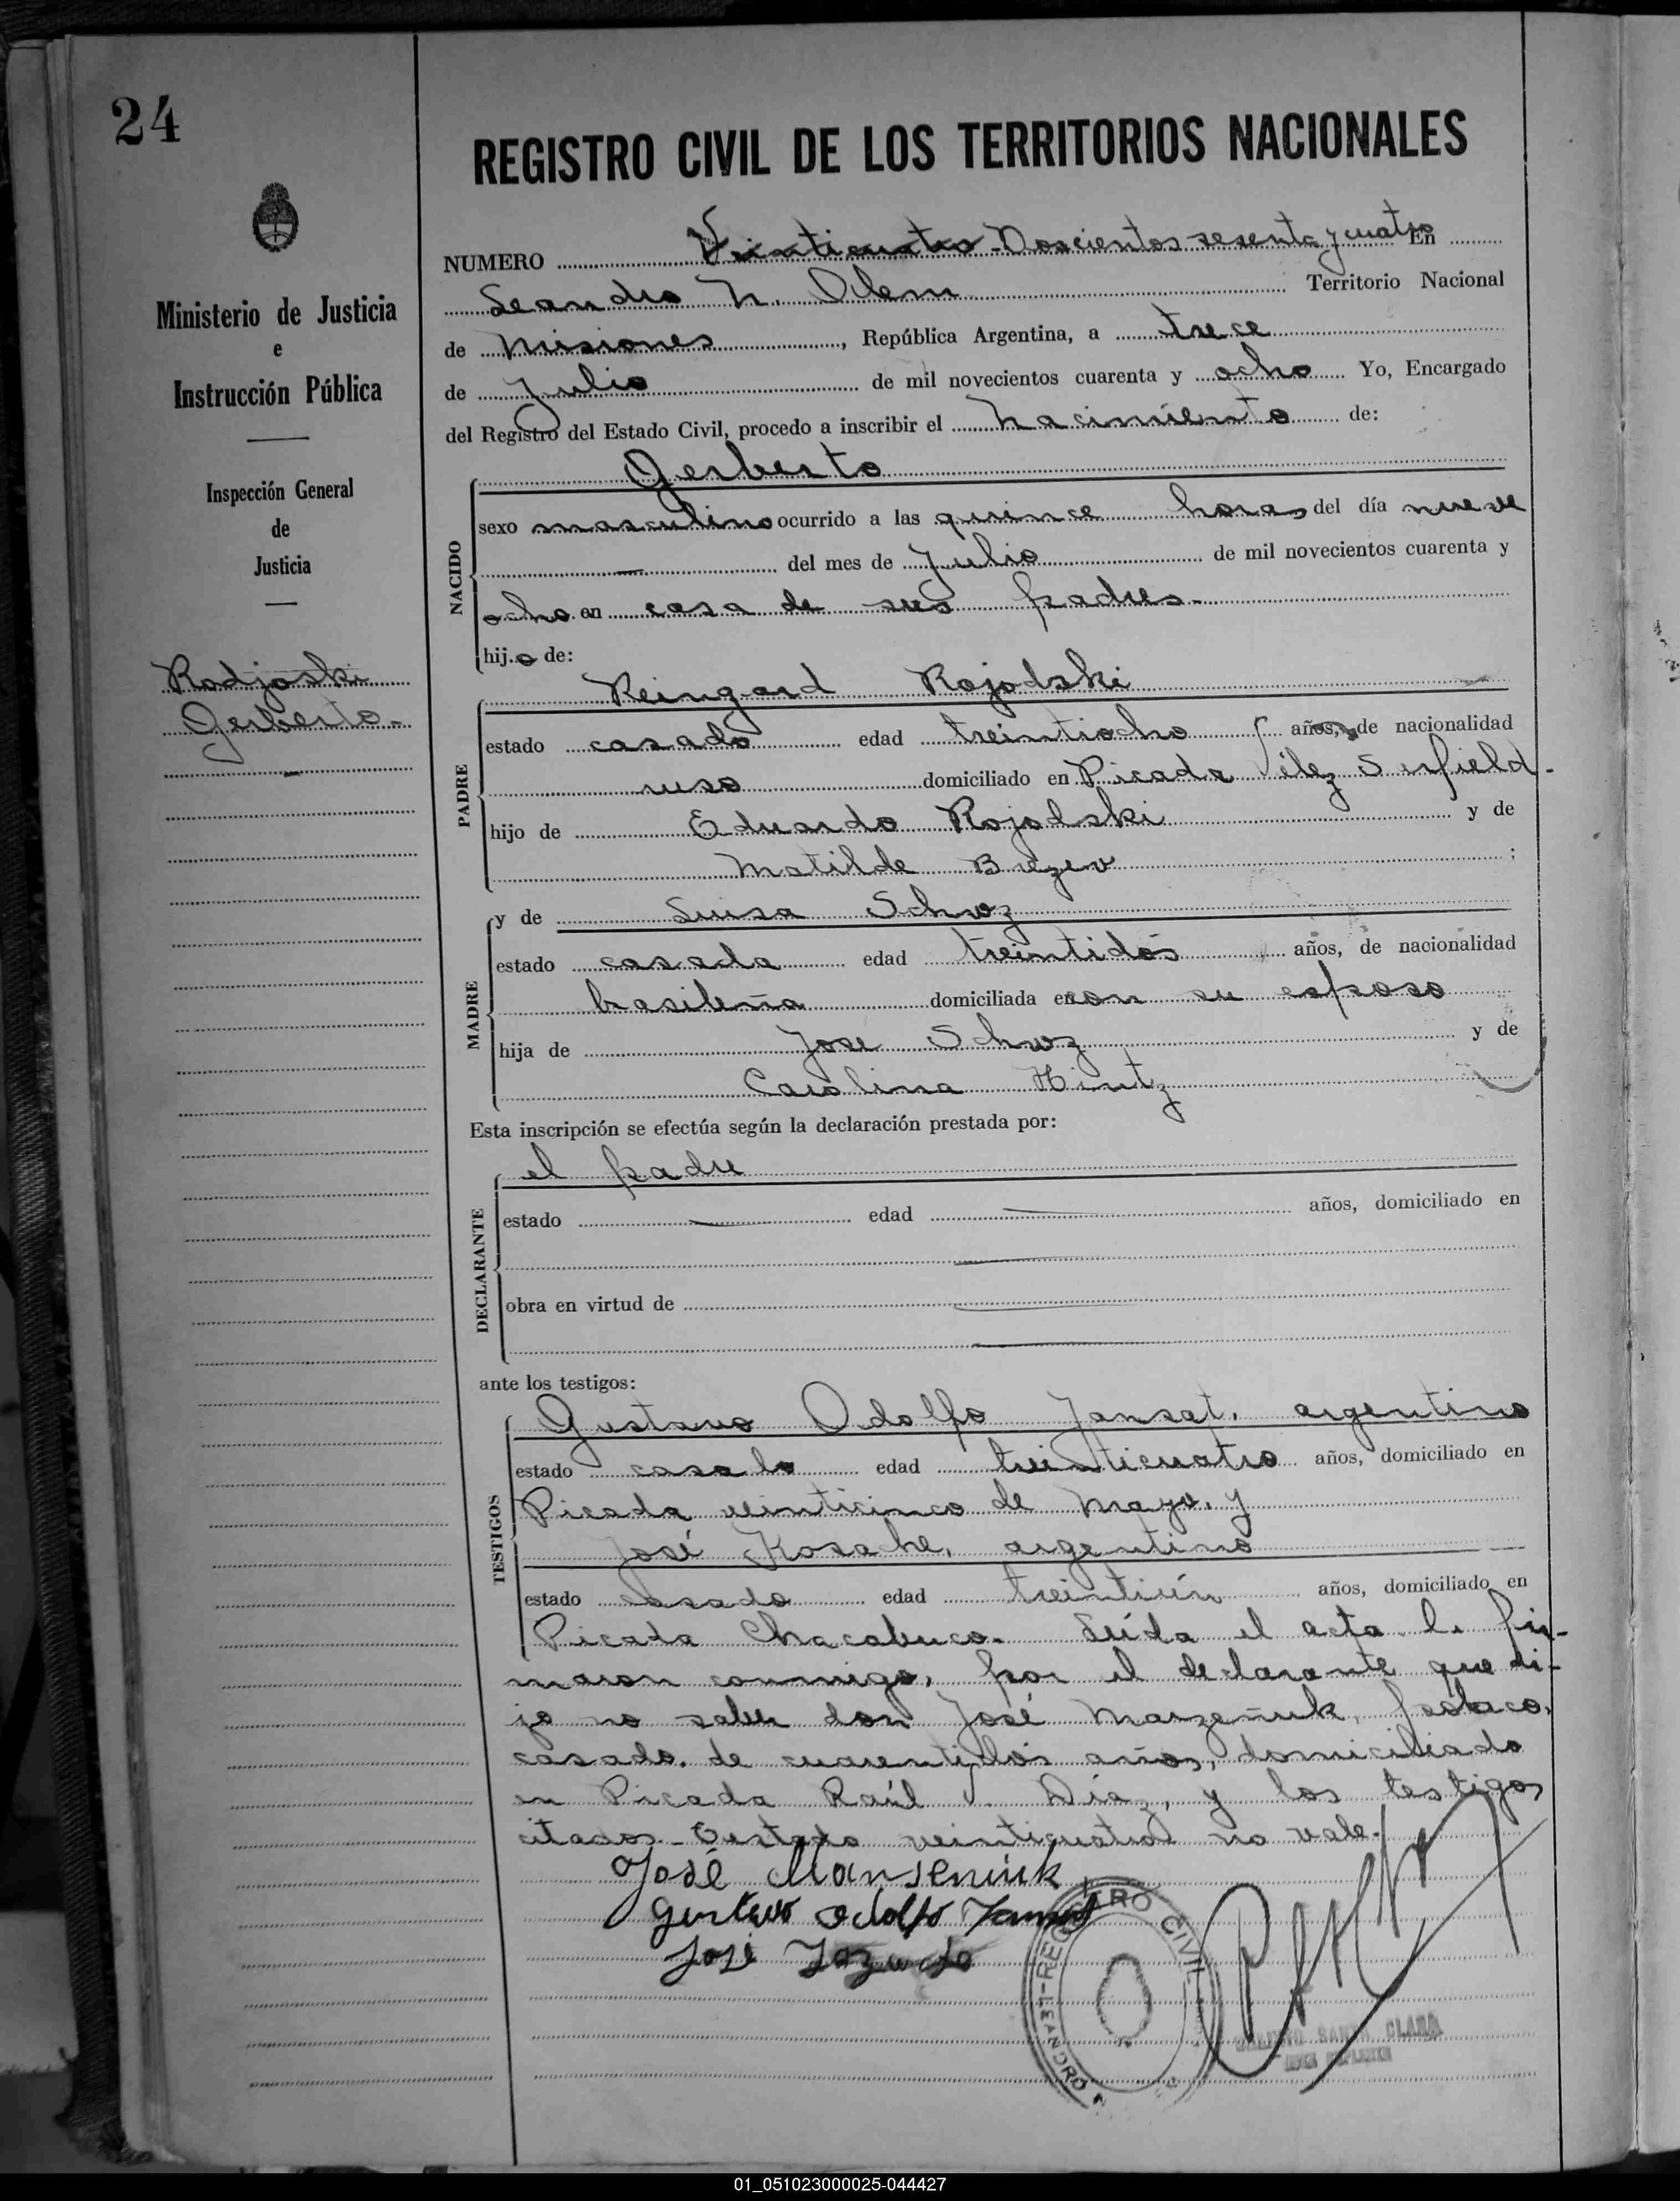 24
REGISTRO CIVIL DE LOS TERRITORIOS NACIONALES
Ministerio de Justicia
e
Instrucción Pública
Inspección General
de
Justicia
Rodjoski
Gerberto.
NUMERO Veinticuatro - Doscientos sesenta y cuatro En
Leandro N. Alem Territorio Nacional
de Misiones, República Argentina, a trece
de Julio de mil novecientos cuarenta y ocho Yo, Encargado
del Registro del Estado Civil, procedo a inscribir el nacimiento de:
NACIDO
Gerberto
sexo masculino ocurrido a las quince horas del día nueve
del mes de Julio de mil novecientos cuarenta y
ocho en casa de sus padres.
hijo de:
PADRE
Reingard Rojodski
estado casado edad treintiocho años, de nacionalidad
ruso domiciliado en Picada Vélez Sarfield.
hijo de Eduardo Rojodski y de
Matilde ;
MADRE
y de Luisa Schwz
estado casada edad treintidós años, de nacionalidad
brasileña domiciliada en con su esposo
hija de Jose Schwz y de
Carolina Hintz
Esta inscripción se efectúa según la declaración prestada por:
DECLARANTE
el padre
estado edad años, domiciliado en
obra en virtud de
ante los testigos:
TESTIGOS
Gustavo Adolfo Jansat, argentino
estado casado edad treinticuatro años, domiciliado en
Picada veinticinco de Mayo, y
José argentino
estado casado edad treintiún años, domiciliado en
Picada Chacabuco. Leída el acta la fir-
maron conmigo, por el declarante que di-
jo no saber don José Marzeñuk, polaco,
casado, de cuarentidós años, domiciliado
en Picada Raúl V. Díaz, y los testigos
citados. Testado veinticuatro no vale.
José Marseniuk
Gustavo Adolfo
José
REGISTRO CIVIL
LEANDRO N.
SANTA CLARA
01_051023000025-044427